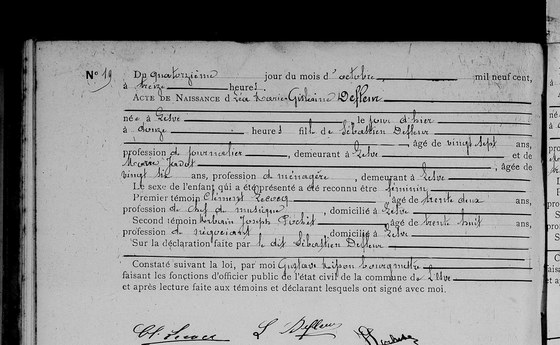 No 19. Du quatorzième jour du mois d'octobre mil neuf cent,
à treize heures,
ACTE DE NAISSANCE d'Léa Marie Ghislaine Defleur
née à Lesve le jour d'hier
à douze heures fille de Sébastien Defleur
, âgé de vingt sept ans,
profession de journalier, demeurant à Lesve et de
Marie , âgée de
vingt six ans, profession de ménagère, demeurant à Lesve
Le sexe de l'enfant qui a été présenté a été reconnu être féminin
Premier témoin Clément Lecocq âgé de trente deux ans,
profession de chef de musique, domicilié à Lesve
Second témoin Joseph âgé de trente huit ans,
profession de négociant, domicilié à Lesve
Sur la déclaration faite par le dit Sébastien Defleur
Constaté suivant la loi, par moi Gustave bourgmestre
faisant les fonctions d'officier public de l'état civil de la commune de Lesve
et après lecture faite aux témoins et déclarant lesquels ont signé avec moi.
Cl. Lecocq L Defleur